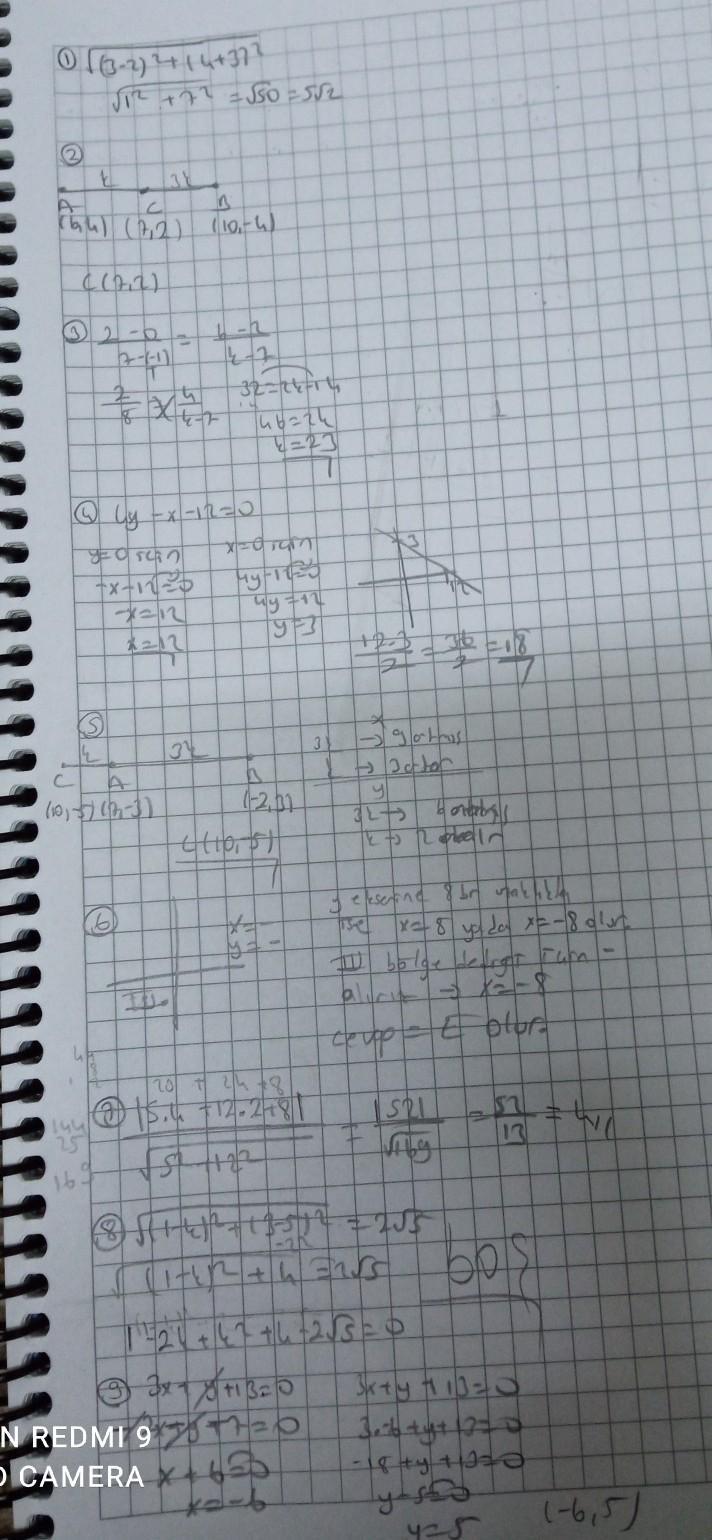 ① √(3-2)²+(4+3)²
√1² + 7² = √50 = 5√2
②
k 3k
A C B
(6,4) (7,2) (10,-4)
C(7,2)
③ 2-0/7-(-1) = 6-2/k-7
2/8 = 4/k-7 32=2k-14
46=2k
k=23
④ 4y-x-12=0
y=0 için x=0 için
-x-12=0 4y-12=0
-x=12 4y=12
x=12 y=3
3
12
12.3/2 = 36/2 = 18
⑤
k 3k
C A B
(10,-5) (7,-3) (-2,3)
x
3k → 9 artmış
k → 3 artar
y
3k →
k → 2
C(10,-5)
⑥
x=-
y=-
III
y eksenine 8 br uzaklıkta
ise x=8 ya da x=-8 olur
III bölge
alırız → x=-8
cevap = E olur
20 + 24 + 8
⑦ |5.4 + 12.2 + 8|/√5²+12² = |52|/√169 = 52/13 = 4
144
25
169
⑧ √(1-k)²+(3-5)² = 2√5
-2
√(1-k)² + 4 = 2√5
1-2k+k²+4-2√5=0
BOŞ
⑨ 3x+y+13=0 3x+y+13=0
2x+y+7=0 3.-6+y+13=0
x+6=0 -18+y+13=0
x=-6 y-5=0
y=5 (-6,5)
N REDMI 9
CAMERA